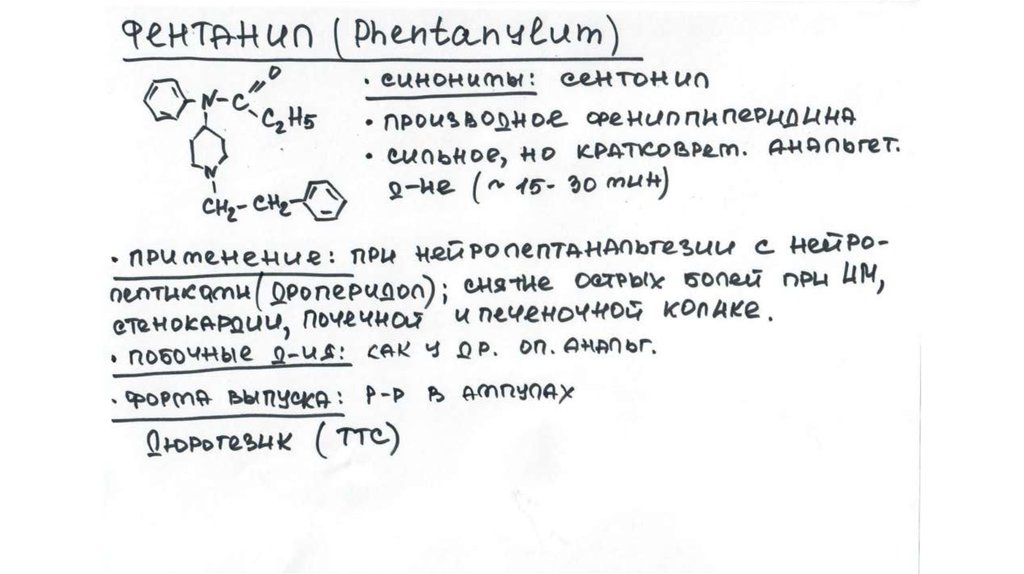 ФЕНТАНИЛ (Phentanylum)
• СИНОНИМЫ: СЕНТОНИЛ
• ПРОИЗВОДНОЕ ФЕНИЛПИПЕРИДИНА
• СИЛЬНОЕ, НО КРАТКОВРЕМ. АНАЛЬГЕТ.
Д-НЕ (~ 15-30 МИН)
N-C
O
C2H5
N
CH2-CH2-
• ПРИМЕНЕНИЕ: ПРИ НЕЙРОЛЕПТАНАЛЬГЕЗИИ С НЕЙРО-
ЛЕПТИКАМИ (ДРОПЕРИДОЛ); СНЯТИЕ ОСТРЫХ БОЛЕЙ ПРИ ИМ,
СТЕНОКАРДИИ, ПОЧЕЧНОЙ И ПЕЧЕНОЧНОЙ КОЛИКЕ.
• ПОБОЧНЫЕ Д-ИЯ: КАК У ДР. ОП. АНАЛЬГ.
• ФОРМА ВЫПУСКА: Р-Р В АМПУЛАХ
ДЮРОГЕЗИК (ТТС)